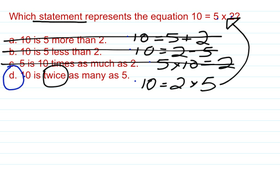 Which statement represents the equation 10 = 5 x 2?
a. 10 is 5 more than 2. 10 = 5 + 2
b. 10 is 5 less than 2. 10 = 2 - 5
c. 5 is 10 times as much as 2. 5 x 10 = 2
d. 10 is twice as many as 5. 10 = 2 x 5